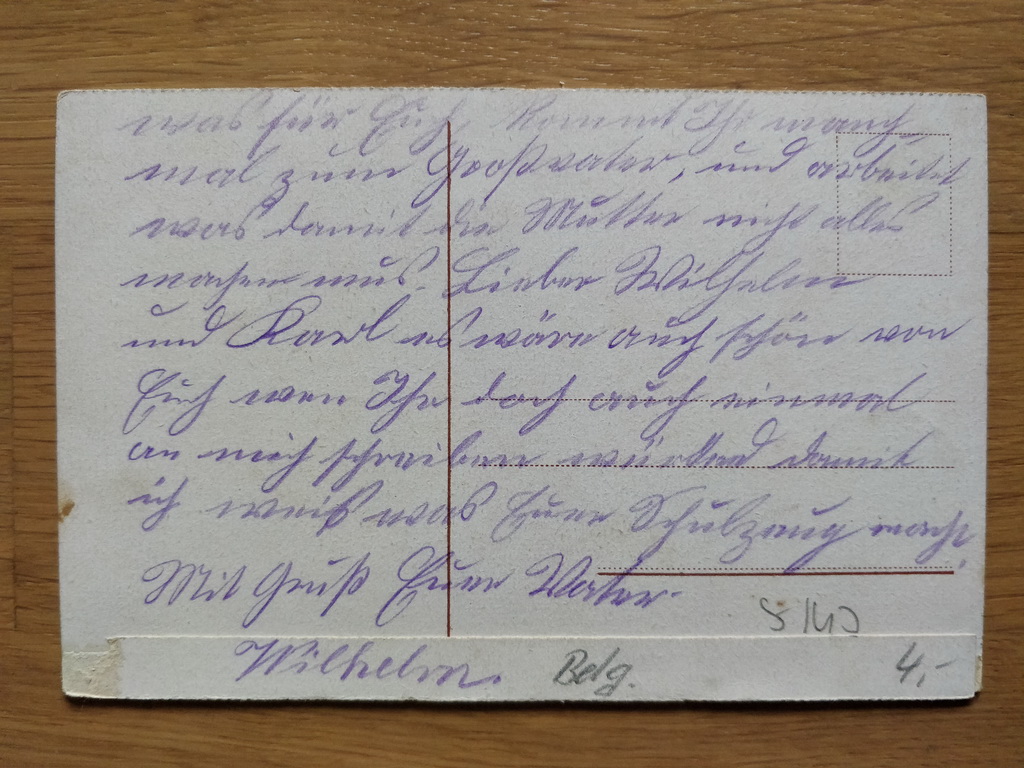 was für Euch kommt Ihr manch
mal zum Großvater, und arbeitet
was damit die Mutter nicht alles
machen mus. Lieber Wilhelm
und Karl es wäre auch schön von
Euch wen Ihr doch auch einmal
an mich schreiben würded damit
ich weiß was Euer Schulzeug macht.
Mit Gruß Euer Vater.
Wilhelm. Belg. 4,-